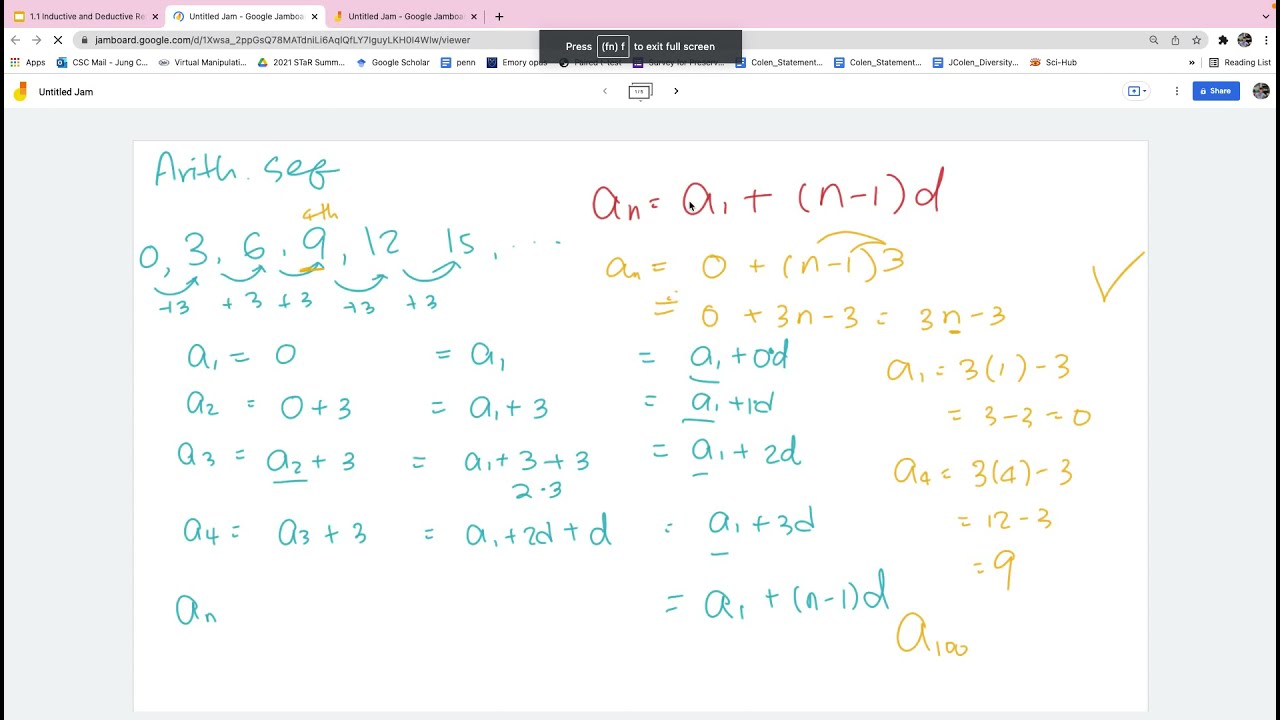 1.1 Inductive and Deductive Re
Untitled Jam - Google Jamboard
Untitled Jam - Google Jamboard
jamboard.google.com/d/1Xwsa_2ppGsQ78MATdniLi6AqIQfLY7IguyLKH0I4WIw/viewer
Press (fn) f to exit full screen
Apps CSC Mail - Jung C... Virtual Manipulati... 2021 STaR Summ... Google Scholar penn Emory opus Paired t-test Survey for Preserv... Colen_Statement... Colen_Statement... JColen_Diversity... Sci-Hub » Reading List
Untitled Jam
1/5
Share
Arith. seq
4th
0, 3, 6, 9, 12 15, ....
+3 +3 +3 +3 +3
a1 = 0 = a1 = a1 + 0d
a2 = 0+3 = a1+3 = a1+1d
a3 = a2+3 = a1+3+3 = a1+2d
2·3
a4 = a3+3 = a1+2d+d = a1+3d
an = a1+(n-1)d
an = a1 + (n-1)d
an = 0 + (n-1)3
= 0 + 3n - 3 = 3n - 3
a1 = 3(1) - 3
= 3-3 = 0
a4 = 3(4) - 3
= 12 - 3
= 9
a100